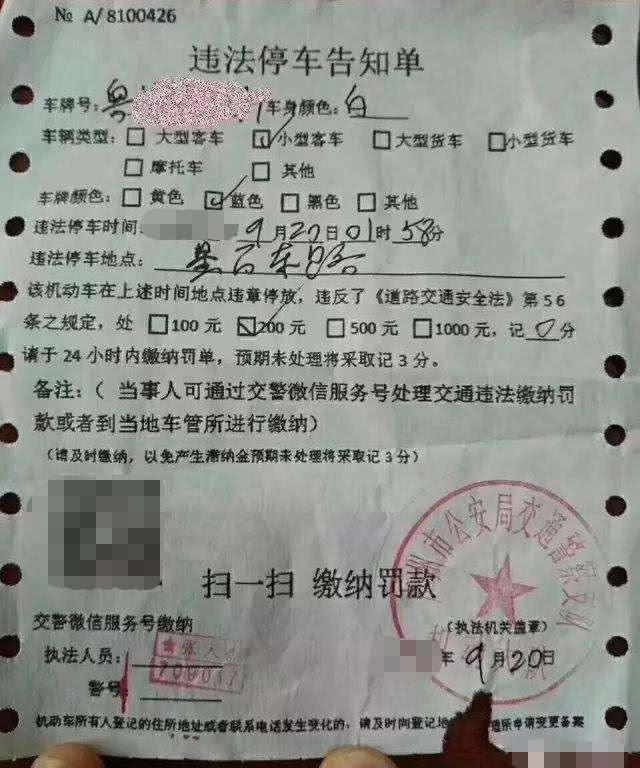 № A/8100426
违法停车告知单
车牌号: 粤 车身颜色: 白
车辆类型: 大型客车 小型客车 大型货车 小型货车
摩托车 其他
车牌颜色: 黄色 蓝色 黑色 其他
违法停车时间: 9月20日01时58分
违法停车地点:
该机动车在上述时间地点违章停放，违反了《道路交通安全法》第56
条之规定，处 100元 200元 500元 1000元，记0分
请于24小时内缴纳罚单，预期未处理将采取记3分。
备注:（ 当事人可通过交警微信服务号处理交通违法缴纳罚
款或者到当地车管所进行缴纳）
（请及时缴纳，以免产生滞纳金预期未处理将采取记3分）
扫一扫 缴纳罚款
州市公安局交通警察支队
交警微信服务号缴纳
（执法机关盖章）
执法人员:
年9月20日
警号:
机动车所有人登记的住所地址或者联系电话发生变化的，请及时登记地 理所申请变更备案